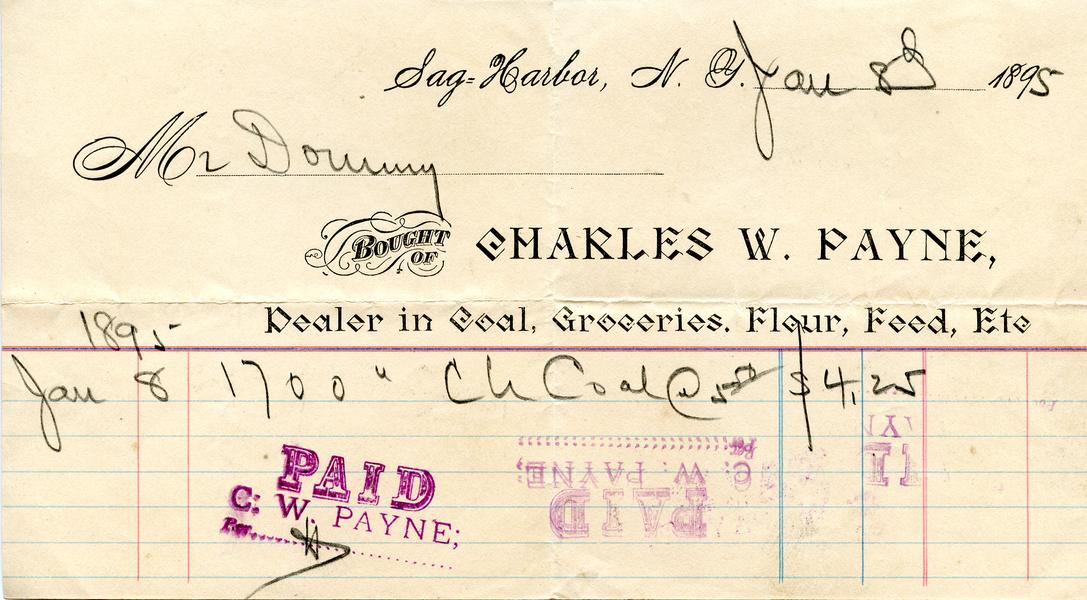 Sag=Harbor, N. Y. Jan 8 1895
Mr Dominy
BOUGHT OF CHARLES W. PAYNE,
Dealer in Coal, Groceries. Flour, Feed, Etc
1895
Jan 8 1700 " Ch Coal @ 5 $4.25
PAID
C. W. PAYNE;
Per
PAID
C. W. PAYNE;
Per